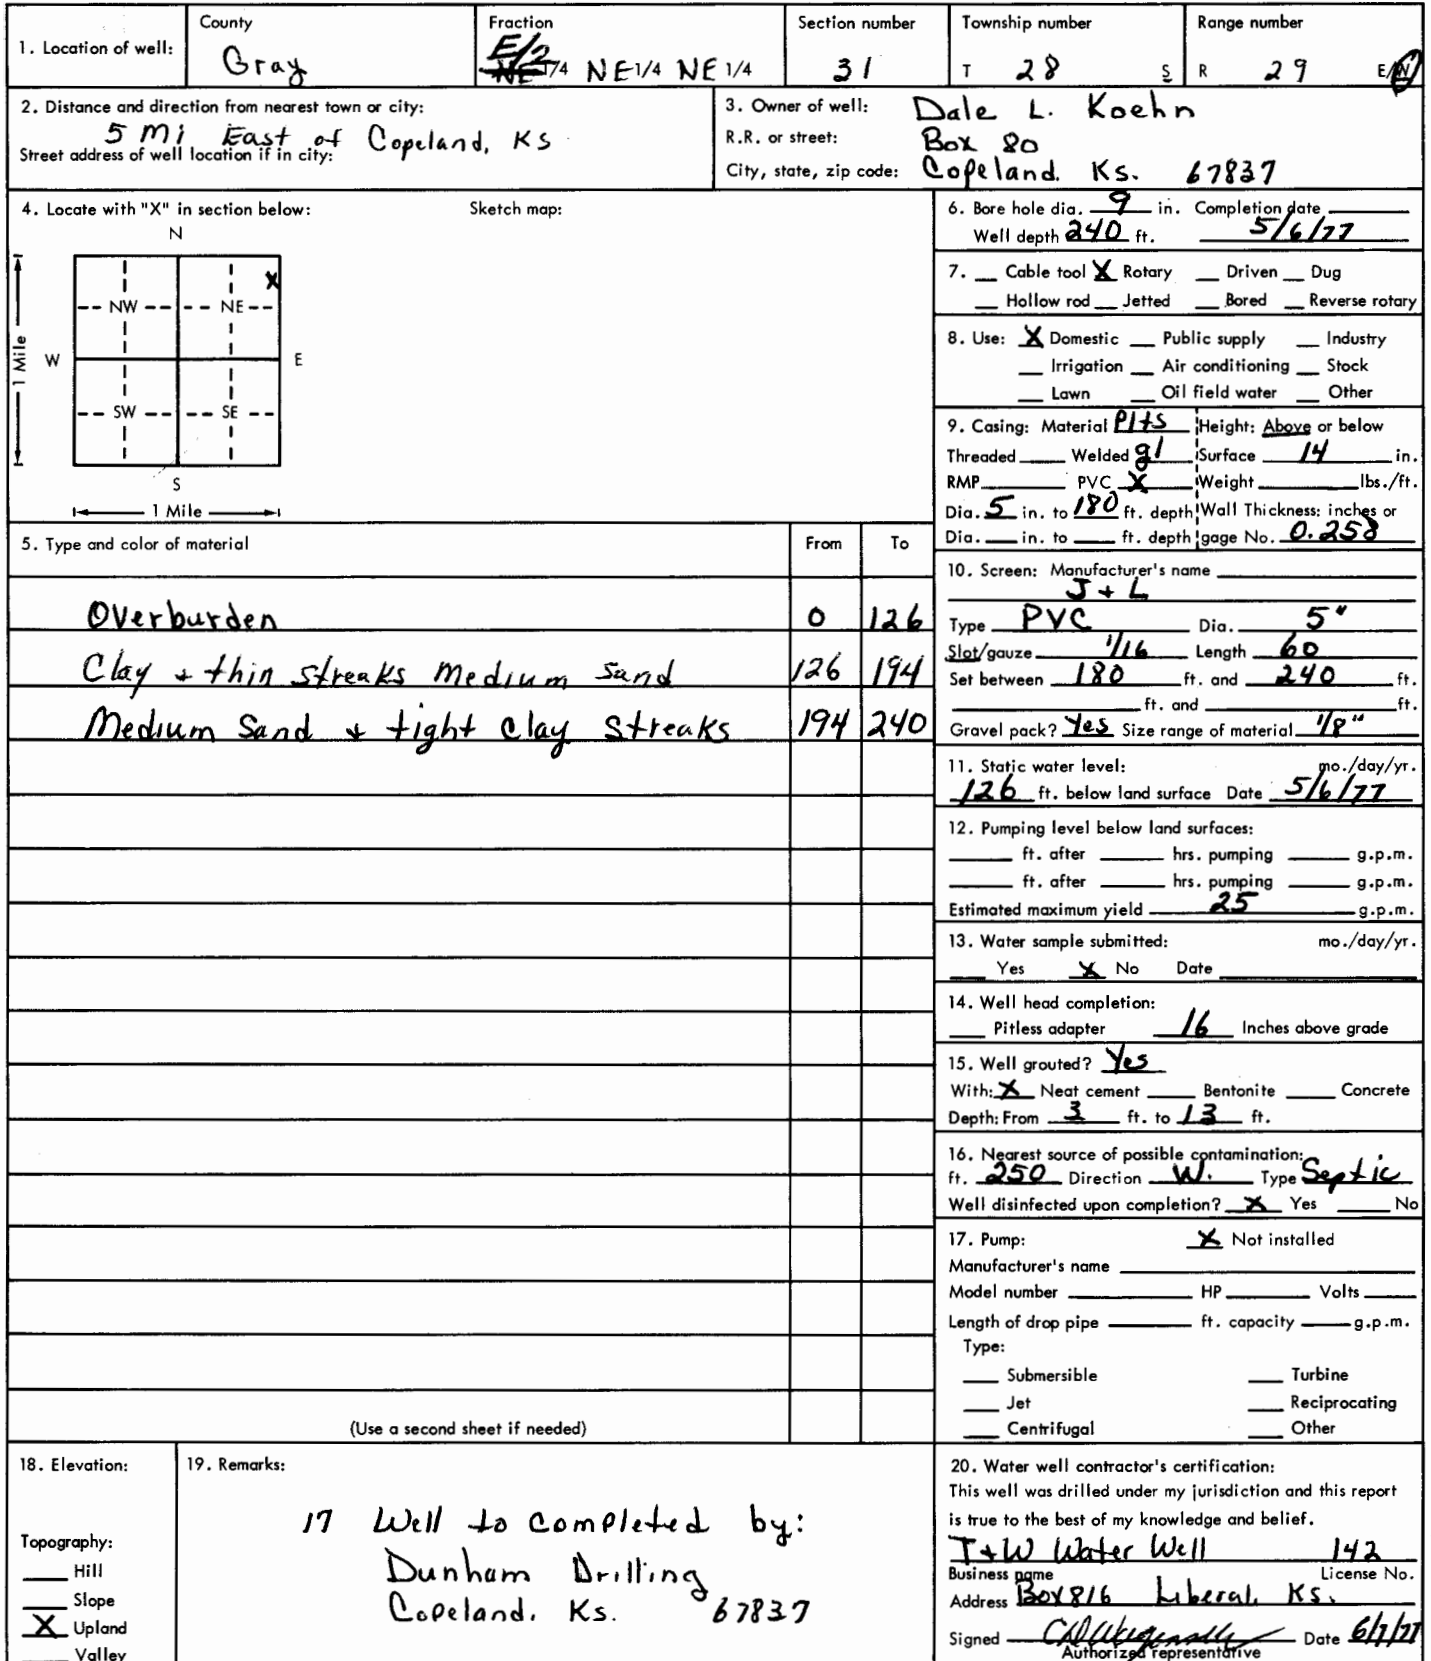 1. Location of well:
County
Gray
Fraction
E/2
NE 1/4 NE 1/4 NE 1/4
Section number
31
Township number
T 28 S
Range number
R 29 E/W
2. Distance and direction from nearest town or city:
5 Mi East of Copeland, Ks
Street address of well location if in city:
3. Owner of well: Dale L. Koehn
R.R. or street: Box 80
City, state, zip code: Copeland. Ks. 67837
4. Locate with "X" in section below:
Sketch map:
N
X
NW NE
1 Mile
W E
SW SE
S
1 Mile
5. Type and color of material From To
Overburden 0 126
Clay + thin streaks Medium Sand 126 194
Medium Sand + tight Clay Streaks 194 240
(Use a second sheet if needed)
6. Bore hole dia. 9 in. Completion date
Well depth 240 ft. 5/6/77
7. __ Cable tool X Rotary __ Driven __ Dug
__ Hollow rod __ Jetted __ Bored __ Reverse rotary
8. Use: X Domestic __ Public supply __ Industry
__ Irrigation __ Air conditioning __ Stock
__ Lawn __ Oil field water __ Other
9. Casing: Material Plts Height: Above or below
Threaded ____ Welded gl Surface 14 in.
RMP ____ PVC X Weight ____ lbs./ft.
Dia. 5 in. to 180 ft. depth Wall Thickness: inches or
Dia. ___ in. to ___ ft. depth gage No. 0.258
10. Screen: Manufacturer's name
J + L
Type PVC Dia. 5"
Slot/gauze 1/16 Length 60
Set between 180 ft. and 240 ft.
____ ft. and ____ ft.
Gravel pack? Yes Size range of material 1/8"
11. Static water level: mo./day/yr.
126 ft. below land surface Date 5/6/77
12. Pumping level below land surfaces:
____ ft. after ____ hrs. pumping ____ g.p.m.
____ ft. after ____ hrs. pumping ____ g.p.m.
Estimated maximum yield 25 g.p.m.
13. Water sample submitted: mo./day/yr.
___ Yes X No Date ____
14. Well head completion:
___ Pitless adapter 16 Inches above grade
15. Well grouted? Yes
With: X Neat cement ____ Bentonite ____ Concrete
Depth: From 3 ft. to 13 ft.
16. Nearest source of possible contamination:
ft. 250 Direction W. Type Septic
Well disinfected upon completion? X Yes ____ No
17. Pump: X Not installed
Manufacturer's name ____
Model number ____ HP ____ Volts ____
Length of drop pipe ____ ft. capacity ____ g.p.m.
Type:
___ Submersible ___ Turbine
___ Jet ___ Reciprocating
___ Centrifugal ___ Other
18. Elevation:
Topography:
___ Hill
___ Slope
X Upland
Valley
19. Remarks:
17 Well to completed by:
Dunham Drilling
Copeland. Ks. 67837
20. Water well contractor's certification:
This well was drilled under my jurisdiction and this report
is true to the best of my knowledge and belief.
T+W Water Well 142
Business name License No.
Address Box 816 Liberal, Ks.
Signed ____ Date 6/7/77
Authorized representative